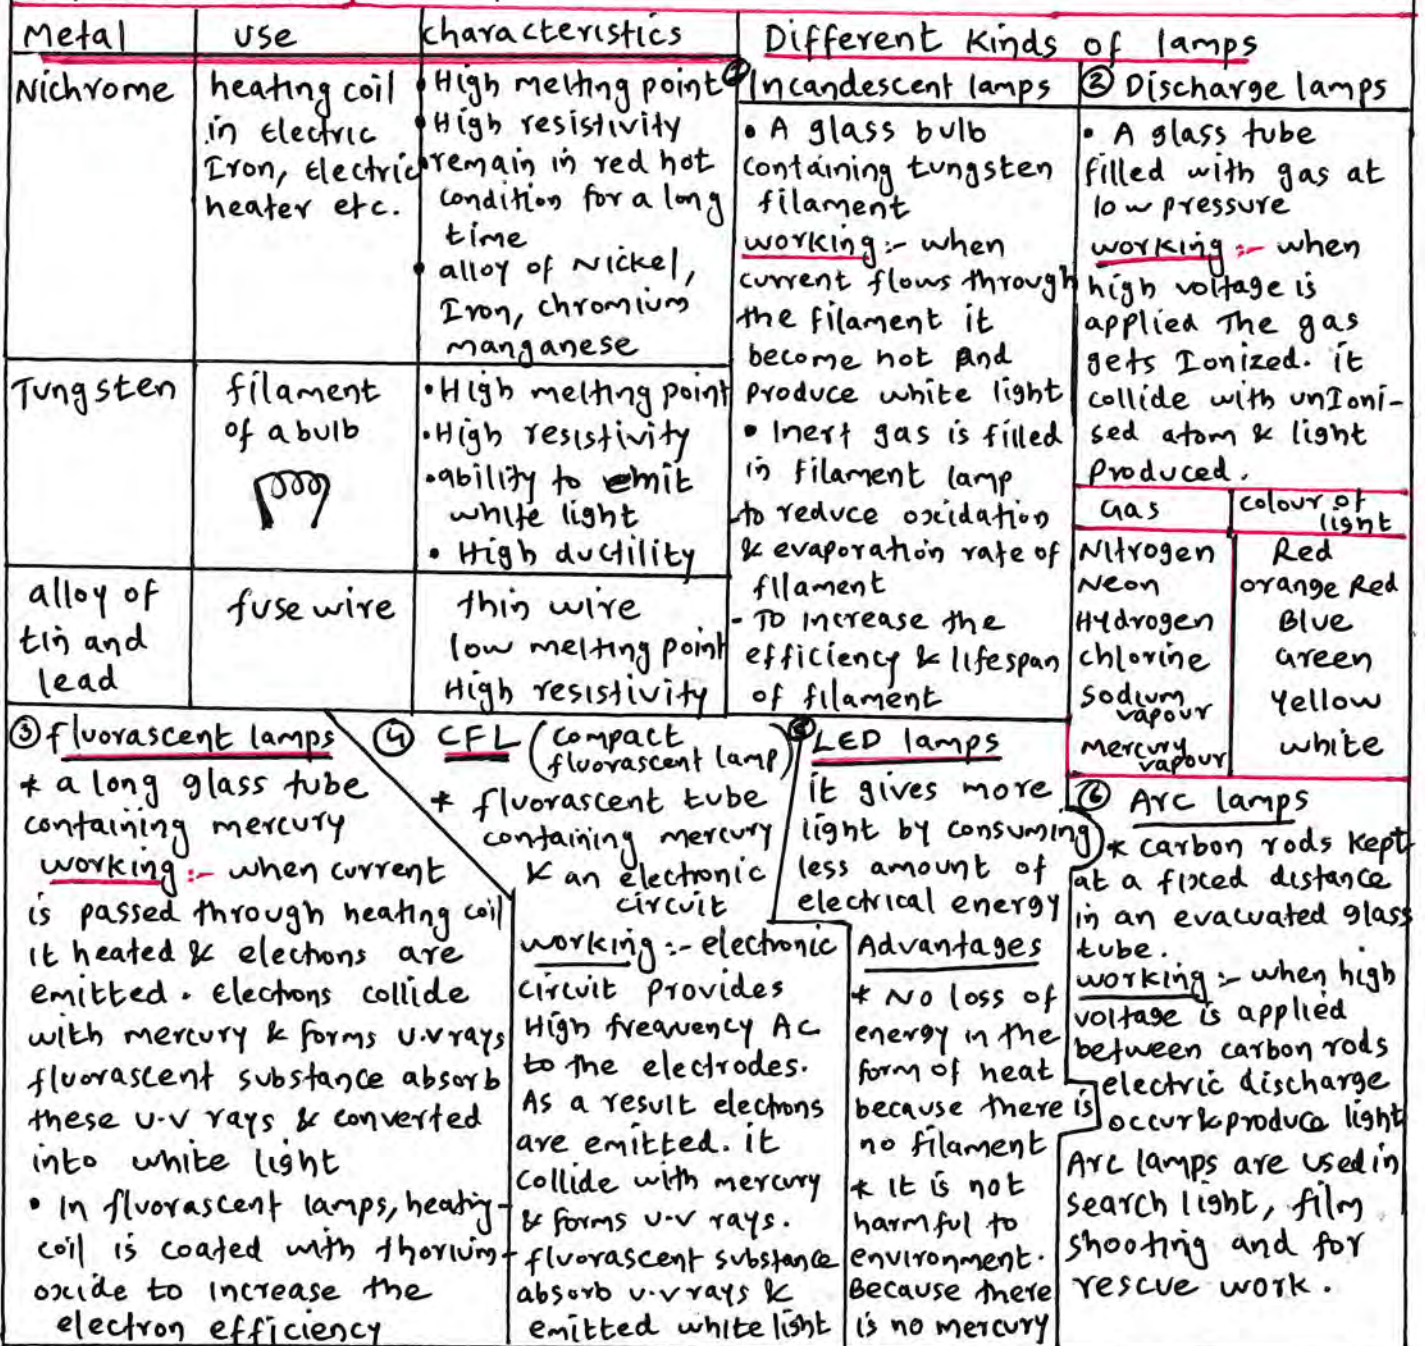 Metal
use
characteristics
Nichrome
heating coil
in Electric
Iron, Electric
heater etc.
• High melting point
• High resistivity
• remain in red hot
condition for a long
time
• alloy of Nickel,
Iron, chromium
manganese
Tungsten
filament
of a bulb
• High melting point
• High resistivity
• ability to emit
white light
• High ductility
alloy of
tin and
lead
fuse wire
thin wire
low melting point
High resistivity
Different kinds of lamps
① Incandescent lamps
• A glass bulb
containing tungsten
filament
working :- when
current flows through
the filament it
become hot and
produce white light
• Inert gas is filled
in filament lamp
-to reduce oxidation
& evaporation rate of
filament
- To increase the
efficiency & lifespan
of filament
② Discharge lamps
• A glass tube
filled with gas at
low pressure
working :- when
high voltage is
applied The gas
gets Ionized. it
collide with unIoni-
sed atom & light
produced.
Gas
colour of
light
Nitrogen Red
Neon orange Red
Hydrogen Blue
chlorine Green
Sodium
vapour
Yellow
mercury
vapour
white
③ fluorascent lamps
* a long glass tube
containing mercury
working :- when current
is passed through heating coil
it heated & elections are
emitted. Electrons collide
with mercury & forms u.v rays
fluorascent substance absorb
these u-v rays & converted
into white light
• In fluorascent lamps, heating-
coil is coated with thorium-
oxide to increase the
electron efficiency
④ CFL (compact
fluorascent lamp)
* fluorascent tube
containing mercury
& an electronic
circuit
working :- electronic
circuit provides
High frequency Ac
to the electrodes.
As a result elections
are emitted. it
collide with mercury
& forms u-v rays.
fluorascent substance
absorb u.v rays &
emitted white light
⑤ LED lamps
it gives more
light by consuming
less amount of
electrical energy
Advantages
* No loss of
energy in the
form of heat
because there is
no filament
* It is not
harmful to
environment.
Because there
is no mercury
⑥ Arc lamps
* carbon rods kept
at a fixed distance
in an evacuated glass
tube.
working :- when high
voltage is applied
between carbon rods
electric discharge
occur & produce light
Arc lamps are used in
search light, film
shooting and for
rescue work.